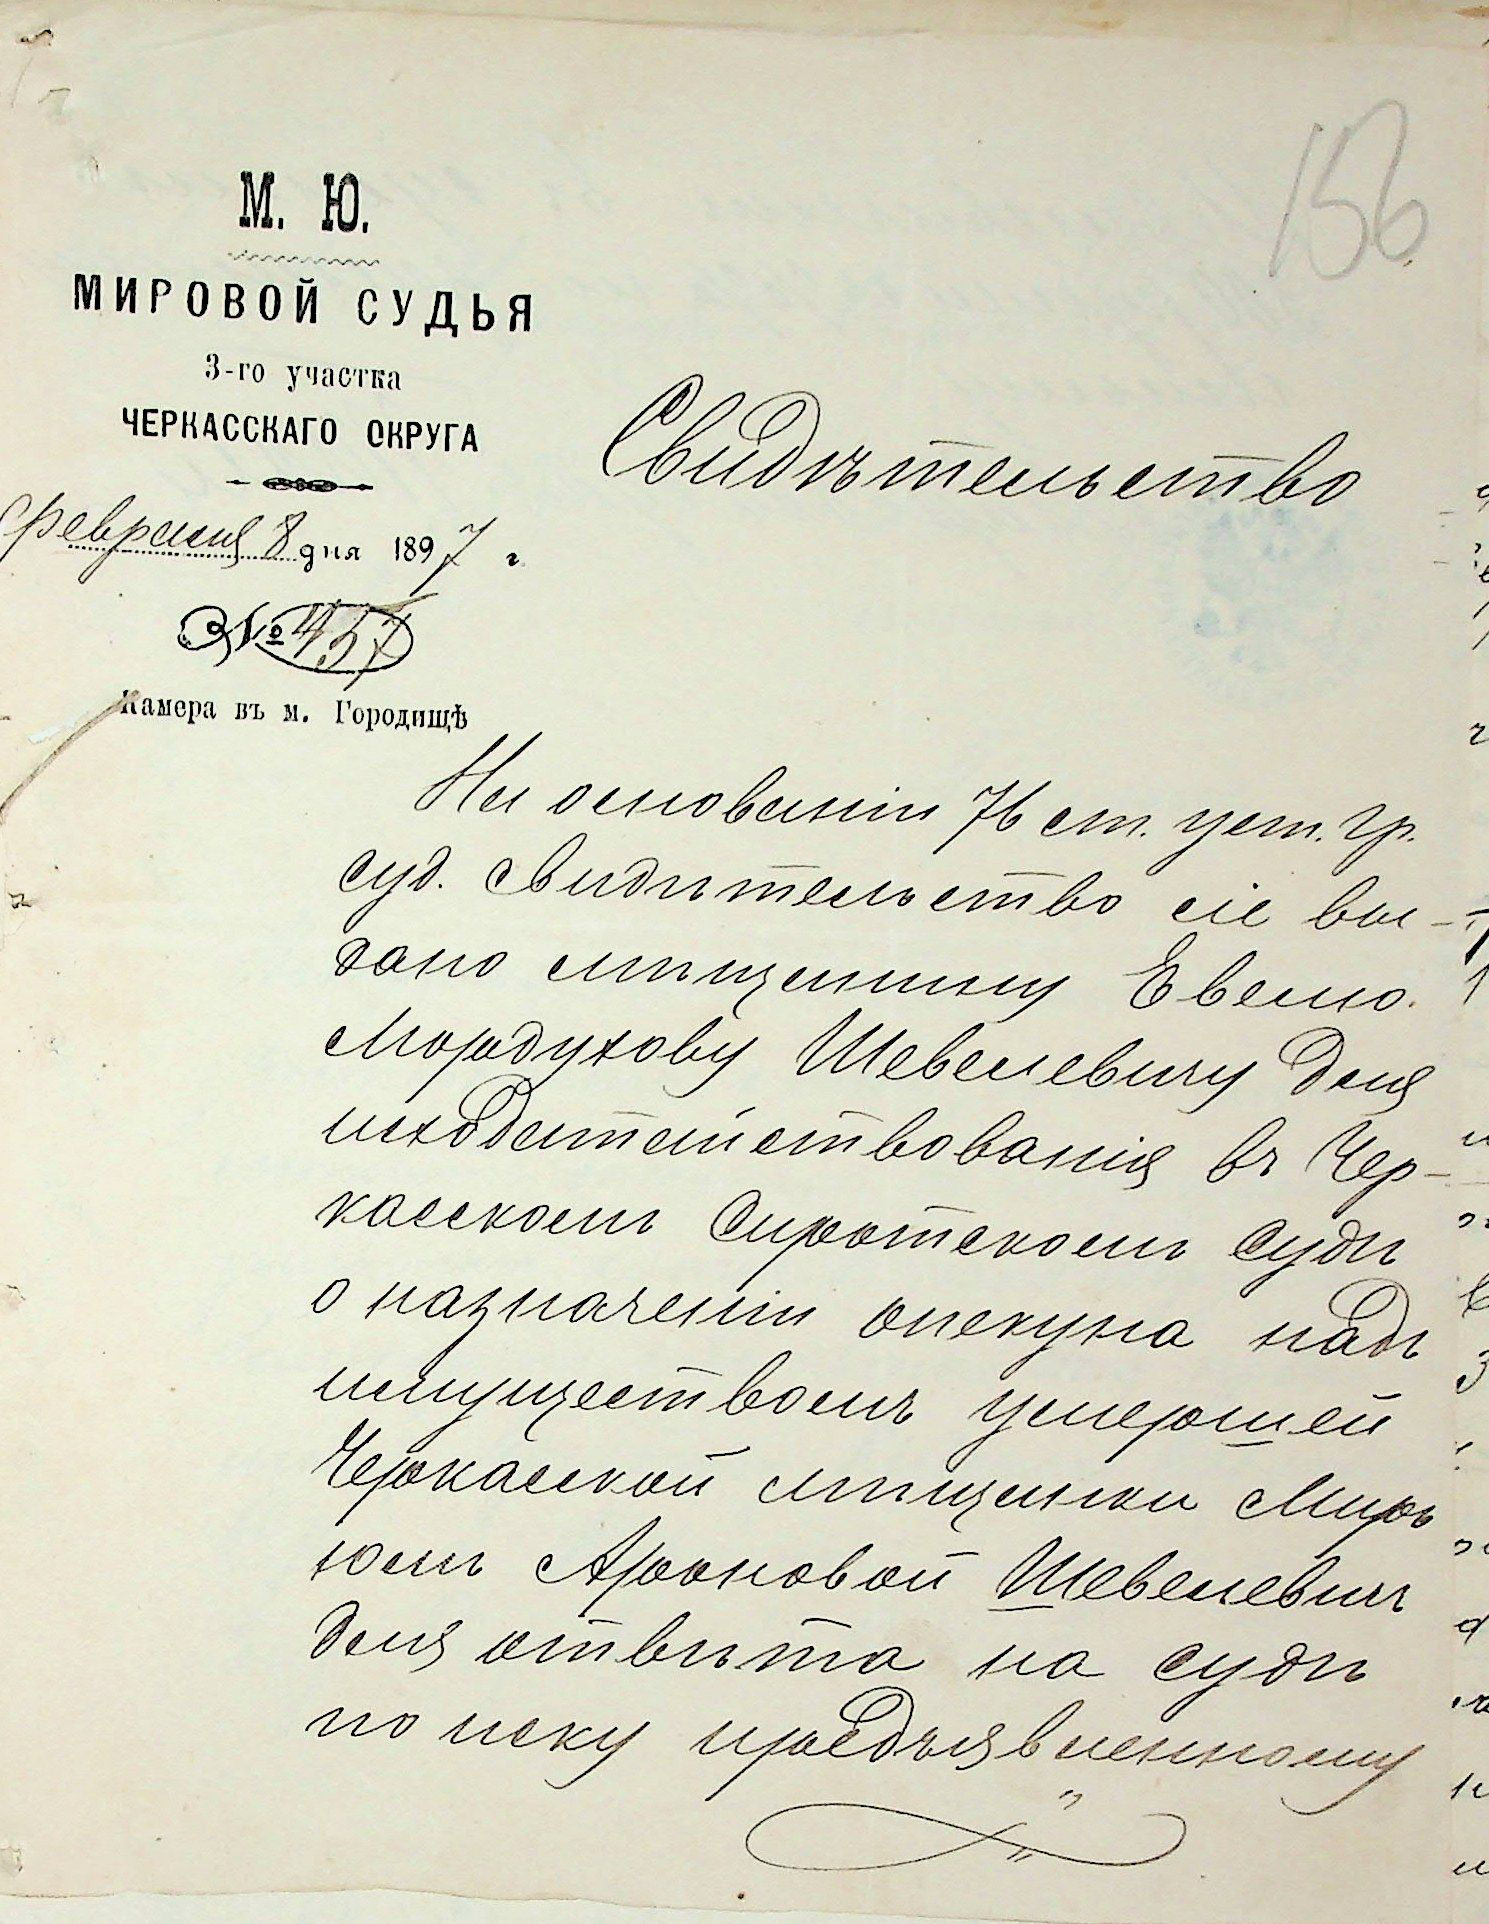 156
М. Ю.
МИРОВОЙ СУДЬЯ
3-го участка
ЧЕРКАССКАГО ОКРУГА
Февраля 8 дня 1897 г.
№ 457
Камера въ м. Городищѣ
Свидѣтельство
На основаніи 76 ст. уст. гр.
суд. свидѣтельство сіе вы-
дано мѣщанину Евелю
Мордухову Шевелевичу для
исходатайствованія въ Чер-
касскомъ Сиротскомъ Судѣ
о назначеніи опекуна надъ
имуществомъ умершей
Черкасской мѣщанки Мирь
юмъ Ароновой Шевелевичъ
для отвѣта на судѣ
по иску предъявленному